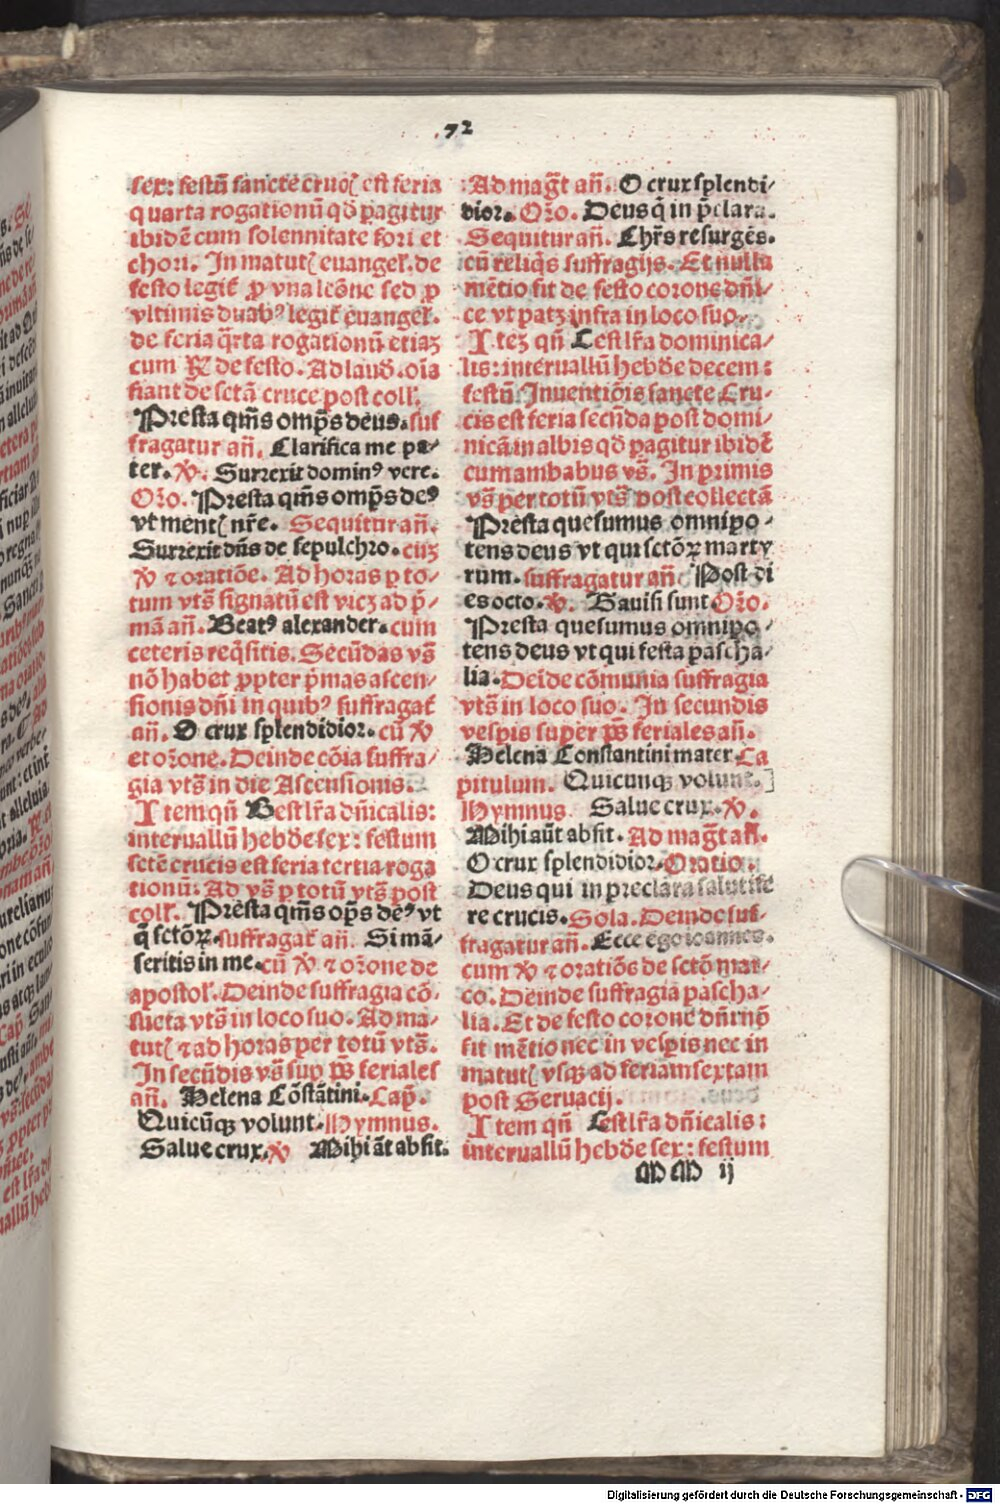 72
sex: festū sancte cruc᷒ est feria
quarta rogationū qď ꝑagitur
ibidē cum solennitate fori et
chori. In matut᷒ euangel̄. de
festo legit̄ ꝓ vna lcōne sed ꝓ
vltimis duabꝰ legit̄ euangel̄.
de feria q̄rta rogationū etiaꝫ
cum ℟ de festo. Ad laud̄. oīa
fiant de sctā cruce post coll̄.
Presta qm̄s omp̄s deus. suf
fragatur añ. Clarifica me pa⸗
ter. ℣. Surrexit dominꝰ vere.
Or̄o. Presta qm̄s omp̄s deꝰ
vt ment᷒ nr̄e. Sequitur añ.
Surrexit dn̄s de sepulchro. cuꝫ
℣ ⁊ oratiōe. Ad horas ꝑ to⸗
tum vts̄ signatū est vicꝫ ad p̄⸗
mā añ. Beatꝰ alexander. cum
ceteris req̄sitis. Secūdas vs̄
nō habet ꝓpter p̄mas ascen⸗
sionis dn̄i in quibꝰ suffragat̄
añ. O crux splendidior. cū ℣
et or̄one. Deinde cōia suffra⸗
gia vts̄ in die Ascensionis.
Item qn̄ B est lr̄a dn̄icalis:
interuallū hebd̄e sex: festum
sctē crucis est feria tertia roga
tionū. Ad vs̄ ꝑ totū vts̄ post
coll̄. Presta qm̄s op̄s deꝰ vt
q̄ sctōꝝ. suffragat̄ añ. Si mā⸗
seritis in me. cū ℣ ⁊ or̄one de
apostol̄. Deinde suffragia cō⸗
sueta vts̄ in loco suo. Ad ma⸗
tut᷒ ⁊ ad horas per totū vts̄.
In secūdis vs̄ suꝑ p̄s feriales
añ. Helena Cōstātini. Cap̄.
Quicūqꝫ volunt. Hymnus.
Salue crux. ℣ Mihi āt absit.
Ad maḡt añ. O crux splendi⸗
dior. Or̄o. Deus q̄ in p̄clara.
Sequitur añ. Chr̄s resurgēs.
cū reliq̄s suffragijs. Et nulla
mētio fit de festo corone dn̄i⸗
ce vt patꝫ infra in loco suo.
Iteꝫ qn̄ C est lr̄a dominica⸗
lis: interuallū hebd̄e decem:
festū Inuentiōis sancte Cru⸗
cis est feria secūda post domi⸗
nicā in albis qď ꝑagitur ibidē
cum ambabus vs̄. In primis
vs̄ per totū vts̄ post collectā
Presta quesumus omnipo⸗
tens deus vt qui sctōꝝ marty
rum. suffragatur añ Post di
es octo. ℣. Gauisi sunt Or̄o.
Presta quesumus omnipo⸗
tens deus vt qui festa pascha⸗
lia. Deīde cōmunia suffragia
vts̄ in loco suo. In secundis
vesꝑis super p̄s feriales añ.
Helena Constantini mater Ca
pitulum. Quicunqꝫ volunt.
Hymnus Salue crux. ℣.
Mihi aūt absit. Ad maḡt añ.
O crux splendidior. Oratio.
Deus qui in preclara salutife
re crucis. Sola. Deinde suf⸗
fragatur añ. Ecce ego ioannes.
cum ℣ ⁊ oratiōe de sctō mar⸗
co. Deinde suffragia pascha⸗
lia. Et de festo corone dn̄i nō
fit mētio nec in vesꝑis nec in
matut᷒ vsqꝫ ad feriam sextam
post Seruacij.
Item qn̄ C est lr̄a dn̄icalis:
interuallū hebd̄e sex: festum
MM ij
Digitalisierung gefördert durch die Deutsche Forschungsgemeinschaft - DFG